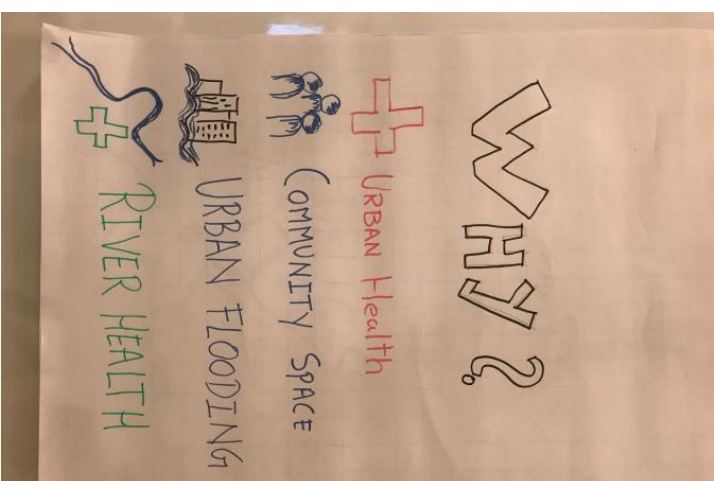 WHY?
URBAN Health
COMMUNITY SPACE
URBAN FLOODING
RIVER HEALTH